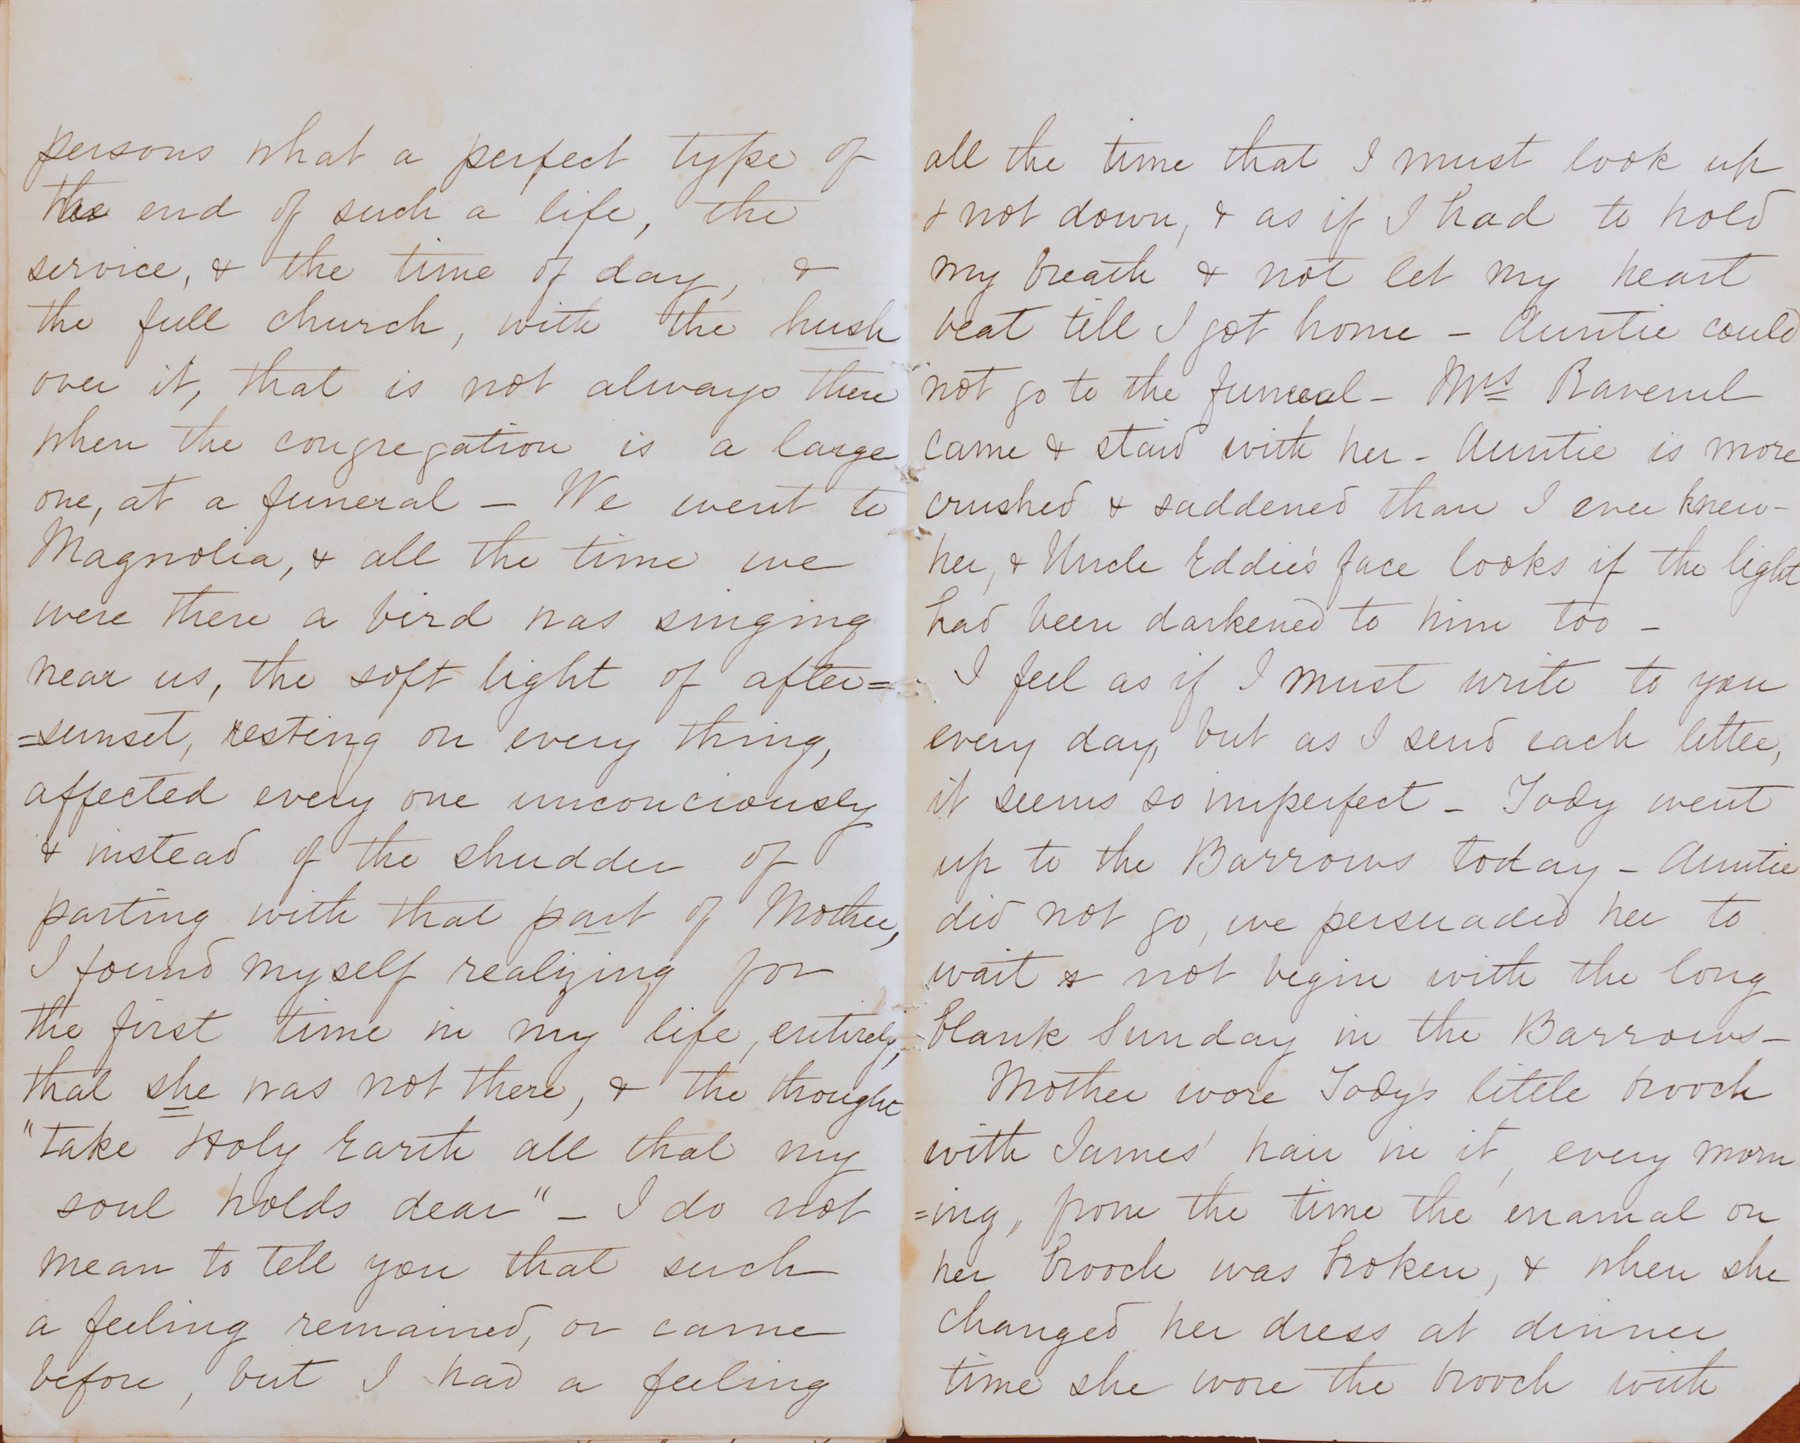 persons what a perfect type of
the end of such a life, the
service, & the time of day, &
the full church, with the hush
over it, that is not always there
when the congregation is a large
one, at a funeral – We went to
Magnolia, & all the time we
were there a bird was singing
near us, the soft light of after=
=sunset, resting on every thing,
affected every one unconciously
& instead of the shudder of
parting with that part of Mother,
I found myself realizing for
the first time in my life, entirely,
that she was not there, & the thought
"take Holy Earth all that my
soul holds dear" – I do not
mean to tell you that such
a feeling remained, or came
before, but I had a feeling
all the time that I must look up
& not down, & as if I had to hold
my breath & not let my heart
beat till I got home – Auntie could
not go to the funeral – Mrs Ravenel
came & staid with her – Auntie is more
crushed & saddened than I ever knew
her, & Uncle Eddie's face looks if the light
had been darkened to him too –
I feel as if I must write to you
every day, but as I send each letter,
it seems so imperfect – Tody went
up to the Barrows today – Auntie
did not go, we persuaded her to
wait & not begin with the long
blank Sunday in the Barrows –
Mother wore Tody's little brooch
with James' hair in it, every morn
=ing, from the time the enamal on
her brooch was broken, & when she
changed her dress at dinner
time she wore the brooch with